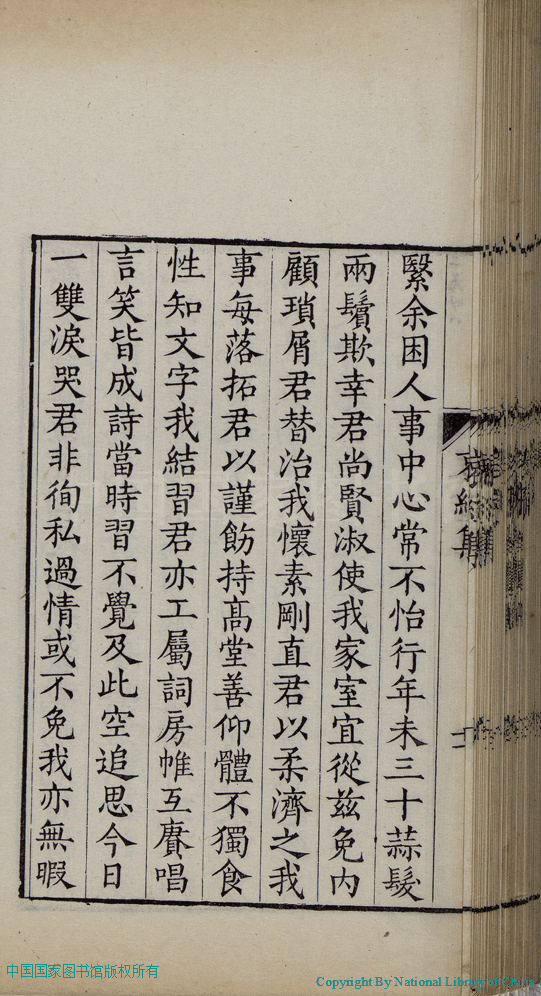 繄余困人事中心常不怡行年未三十蒜髮
兩鬢欺幸君尚賢淑使我家室宜從茲免內
顧瑣屑君替治我懷素剛直君以柔濟之我
事每落拓君以謹飭持高堂善仰體不獨食
性知文字我結習君亦工屬詞房帷互賡唱
言笑皆成詩當時習不覺及此空追思今日
一雙淚哭君非徇私過情或不免我亦無暇
中国国家图书馆版权所有
Copyright By National Library of China